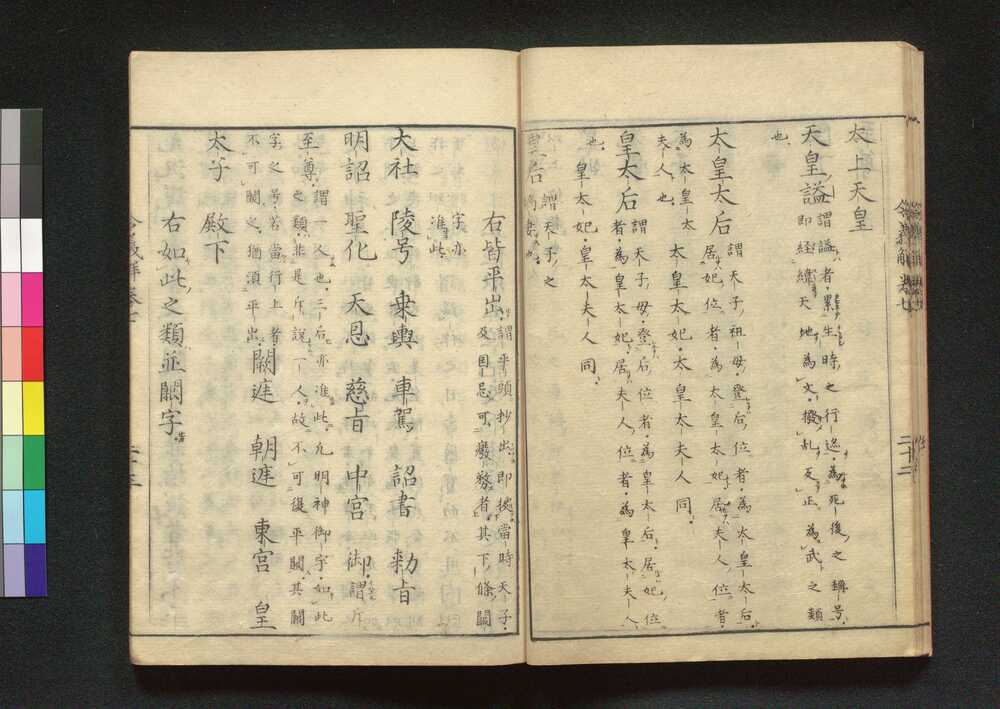 太上天皇
天皇諡 謂諡者累生時之行迹為死後之稱号
即経緯天地為文撥乱反正為武之類
也
太皇太后 謂天子祖母登后位者為太皇太后
居妃位者為太皇太妃居夫人位者
為太皇太
夫人也 太皇太妃太皇太夫人同
皇太后 謂天子母登后位者為皇太后居妃位
者為皇太妃居夫人位者為皇太夫人
也 皇太妃皇太夫人同
皇后 謂天子之
嫡妻也
右皆平出 謂平頭抄出即據當時天子
及国忌可廢務者其下條闕
字亦
准此
大社 陵号 乗輿 車駕 詔書 勅旨
明詔 聖化 天恩 慈旨 中宮 御 謂斥
至尊 謂一人也三后亦准此凡明神御字如此
之類非是斥説一人故不可復平闕其闕
字之号若當行上者
不可闕之猶須平出 闕庭 朝庭 東宮 皇
太子 殿下
右如此之類並闕字
令義解 巻七 二十二